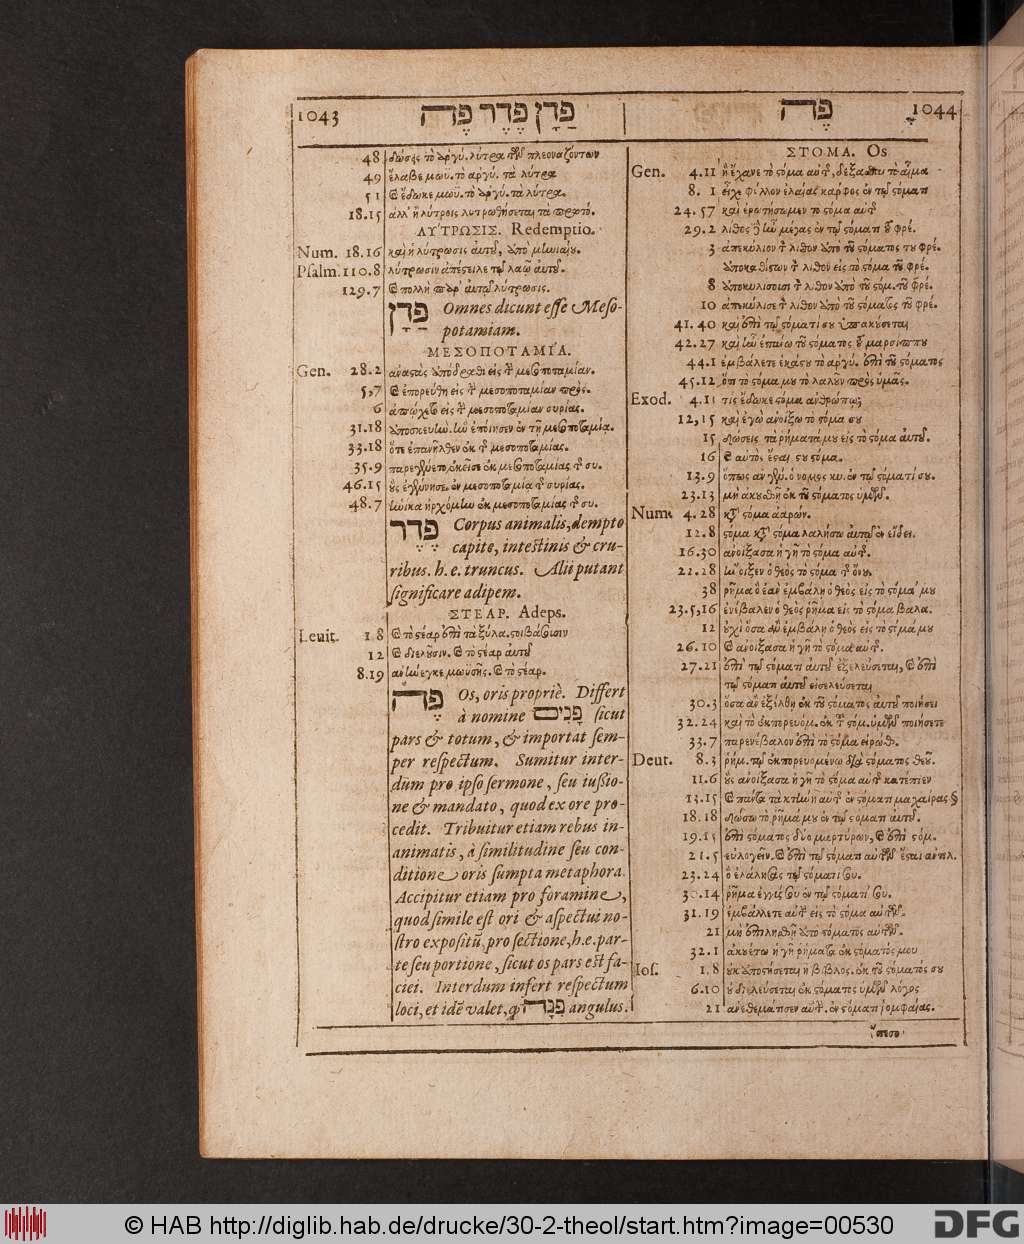 1043 פַּדָּן פֶּדֶר פֶּה
48 δώσῃς τὸ ἀργύ. λύτρα τῶν πλεοναζόντων
49 ἔλαβε μωϋ. τὸ ἀργύ. τὰ λύτρα
51 καὶ ἔδωκε μωϋ. τὸ ἀργύ. τὰ λύτρα.
18.15 ἀλλ' ἢ λύτροις λυτρωθήσεται τὰ πρωτό.
ΛΥΤΡΩΣΙΣ. Redemptio.
Num. 18.16 καὶ ἡ λύτρωσις αὐτοῦ, ἀπὸ μηνιαίου.
Psalm. 110.8 λύτρωσιν ἀπέστειλε τῷ λαῷ αὐτοῦ.
129.7 καὶ πολλὴ παρ' αὐτῷ λύτρωσις.
פַּדָּן Omnes dicunt esse Meso-
potamiam.
ΜΕΣΟΠΟΤΑΜΙΑ.
Gen. 28.2 ἀναστὰς ἀπόδραθι εἰς τὴν μεσοποταμίαν.
5,7 καὶ ἐπορεύθη εἰς τὴν μεσοποταμίαν πρὸς.
6 ἀπῴχετο εἰς τὴν μεσοποταμίαν συρίας.
31.18 ἀποσκευὴν. ἣν ἐποίησεν ἐν τῇ μεσοποταμίᾳ.
33.18 ὅτε ἐπανῆλθεν ἐκ τῆς μεσοποταμίας.
35.9 παρεγένετο ἐκ μεσοποταμίας τῆς συ.
46.15 οὓς ἐγέννησε. ἐν μεσοποταμίᾳ τῆς συρίας.
48.7 ἡνίκα ἠρχόμην ἐκ μεσοποταμίας τῆς συ.
פֶּדֶר Corpus animalis, dempto
capite, intestinis & cru-
ribus. h. e. truncus. Alii putant
significare adipem.
ΣΤΕΑΡ. Adeps.
Leuit. 1 8 καὶ τὸ στέαρ ἐπὶ τὰ ξύλα. στοιβάσουσιν
12 καὶ διελοῦσιν. καὶ τὸ στέαρ αὐτοῦ
8.19 ἀνήνεγκε μωϋσῆς. καὶ τὸ στέαρ.
פֶּה Os, oris propriè. Differt
à nomine פָּנִים sicut
pars & totum, & importat sem-
per respectum. Sumitur inter-
dum pro ipso sermone, seu iussio-
ne & mandato, quod ex ore pro-
cedit. Tribuitur etiam rebus in-
animatis, à similitudine seu con-
ditione oris sumpta metaphora.
Accipitur etiam pro foramine,
quod simile est ori & aspectui no-
stro expositū, pro sectione, h.e. par-
te seu portione, sicut os pars est fa-
ciei. Interdum infert respectum
loci, et idē valet, q̃ פִּנָּה angulus.
פֶּה 1044
ΣΤΟΜΑ. Os
Gen. 4.11 ἣ ἔχανε τὸ στόμα αὐτῆς, δέξασθαι τὸ αἷμα
8. 1 εἶχε φύλλον ἐλαίας κάρφος ἐν τῷ στόματι
24.57 καὶ ἐρωτήσωμεν τὸ στόμα αὐτῆς
29.2 λίθος δὲ ἦν μέγας ἐν τῷ στόματι τοῦ φρέ.
3 ἀπεκύλιον τὸν λίθον ἀπὸ τοῦ στόματος τοῦ φρέ.
ἀποκαθίστων τὸν λίθον εἰς τὸ στόμα τοῦ φρέ.
8 ἀποκυλίσωσι τὸν λίθον ἀπὸ τοῦ στόμ. τοῦ φρέ.
10 ἀπεκύλισε τὸν λίθον ἀπὸ τοῦ στόματος τοῦ φρέ.
41.40 καὶ ἐπὶ τῷ στόματί σου ὑπακούσεται
42.27 καὶ ἦν ἐπάνω τοῦ στόματος τοῦ μαρσίππου
44.1 ἐμβάλετε ἑκάστου τὸ ἀργύ. ἐπὶ τοῦ στόματος
45.12 ὅτι τὸ στόμα μου τὸ λαλοῦν πρὸς ὑμᾶς.
Exod. 4.11 τίς ἔδωκε στόμα ἀνθρώπῳ;
12,15 καὶ ἐγὼ ἀνοίξω τὸ στόμα σου
15 δώσεις τὰ ῥήματά μου εἰς τὸ στόμα αὐτοῦ.
16 καὶ αὐτὸς ἔσται σου στόμα.
13.9 ὅπως ἂν γένη. ὁ νόμος κυ. ἐν τῷ στόματί σου.
23.13 μὴ ἀκουσθῇ ἐκ τοῦ στόματος ὑμῶν.
Num. 4.28 κατὰ στόμα ἀαρών.
12.8 στόμα κατὰ στόμα λαλήσω αὐτῷ ἐν εἴδει.
16.30 ἀνοίξασα ἡ γῆ τὸ στόμα αὐτῆς.
22.28 ἤνοιξεν ὁ θεὸς τὸ στόμα τῆς ὄνου.
38 ῥῆμα ὃ ἐὰν ἐμβάλῃ ὁ θεὸς εἰς τὸ στόμα μου
23.5,16 ἐνέβαλεν ὁ θεὸς ῥῆμα εἰς τὸ στόμα βαλα.
12 οὐχὶ ὅσα ἂν ἐμβάλῃ ὁ θεὸς εἰς τὸ στόμα μου
26.10 καὶ ἀνοίξασα ἡ γῆ τὸ στόμα αὐτῆς.
27.21 ἐπὶ τῷ στόματι αὐτοῦ ἐξελεύσεται, καὶ ἐπὶ
τῷ στόματι αὐτοῦ εἰσελεύσεται
30.3 ὅσα ἂν ἐξέλθῃ ἐκ τοῦ στόματος αὐτοῦ ποιήσει
32.24 καὶ τὸ ἐκπορευόμ. ἐκ τοῦ στόμ. ὑμῶν ποιήσετε
33.7 παρενέβαλον ἐπὶ τὸ στόμα εἰρώθ.
Deut. 8.3 ῥήμ. τῷ ἐκπορευομένῳ διὰ στόματος θεοῦ.
11.6 οὓς ἀνοίξασα ἡ γῆ τὸ στόμα αὐτῆς κατέπιεν
13.15 καὶ πάντα τὰ κτήνη αὐτῆς ἐν στόματι μαχαίρας §
18.18 δώσω τὸ ῥῆμά μου ἐν τῷ στόματι αὐτοῦ.
19.15 ἐπὶ στόματος δύο μαρτύρων, καὶ ἐπὶ στόμ.
21.5 εὐλογεῖν. καὶ ἐπὶ τῷ στόματι αὐτῶν ἔσται ἀντιλ.
23.24 ὃ ἐλάλησας τῷ στόματί σου.
30.14 ῥῆμα ἐγγύς σου ἐν τῷ στόματί σου.
31.19 ἐμβάλλετε αὐτὴν εἰς τὸ στόμα αὐτῶν.
21 μὴ ἐπιλησθῇ ἀπὸ στόματος αὐτῶν.
32.1 ἀκουέτω ἡ γῆ ῥήματα ἐκ στόματός μου
Ios. 1.8 οὐκ ἀποστήσεται ἡ βίβλος. ἐκ τοῦ στόματός σου
6.10 οὐ διελεύσεται ἐκ στόματος ὑμῶν λόγος
21 ἀνεθεμάτισεν αὐτήν. ἐν στόματι ῥομφαίας.
© HAB http://diglib.hab.de/drucke/30-2-theol/start.htm?image=00530
DFG